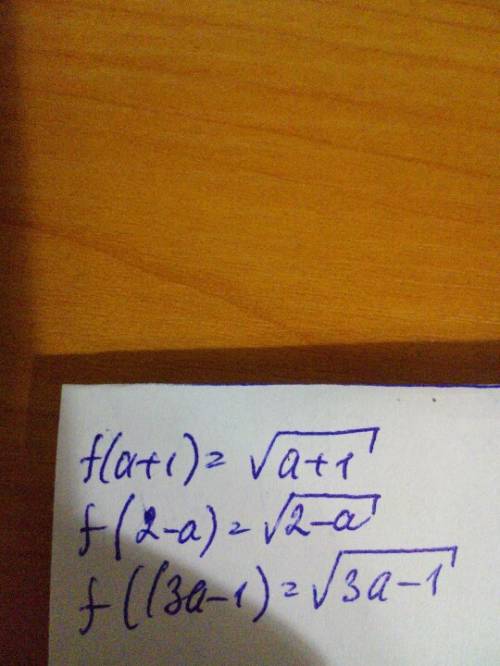 f(a+1)=√a+1
f(2-a)=√2-a
f((3a-1)=√3a-1